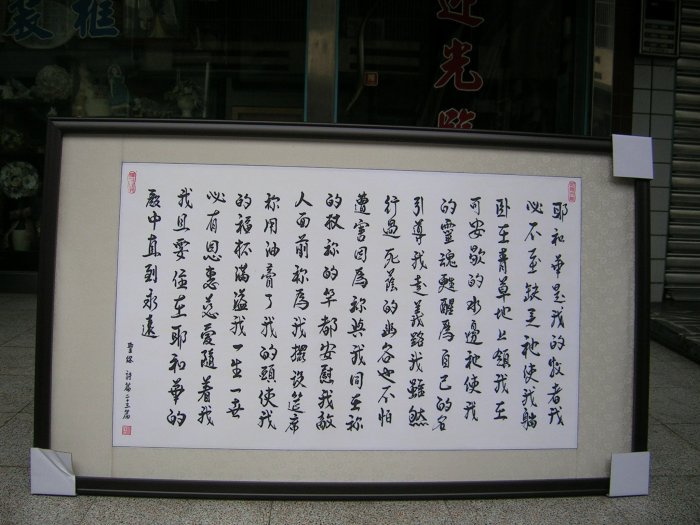 裝框
迎光臨
耶和華是我的牧者我
必不至缺乏祂使我躺
臥在青草地上領我在
可安歇的水邊祂使我
的靈魂甦醒為自己的名
引導我走義路我雖然
行過死蔭的幽谷也不怕
遭害因為袮與我同在袮
的杖袮的竿都安慰我敵
人面前袮為我擺設筵席
袮用油膏了我的頭使我
的福杯滿溢我一生一世
必有恩惠慈愛隨著我
我且要住在耶和華的
殿中直到永遠
聖經 詩篇二三篇